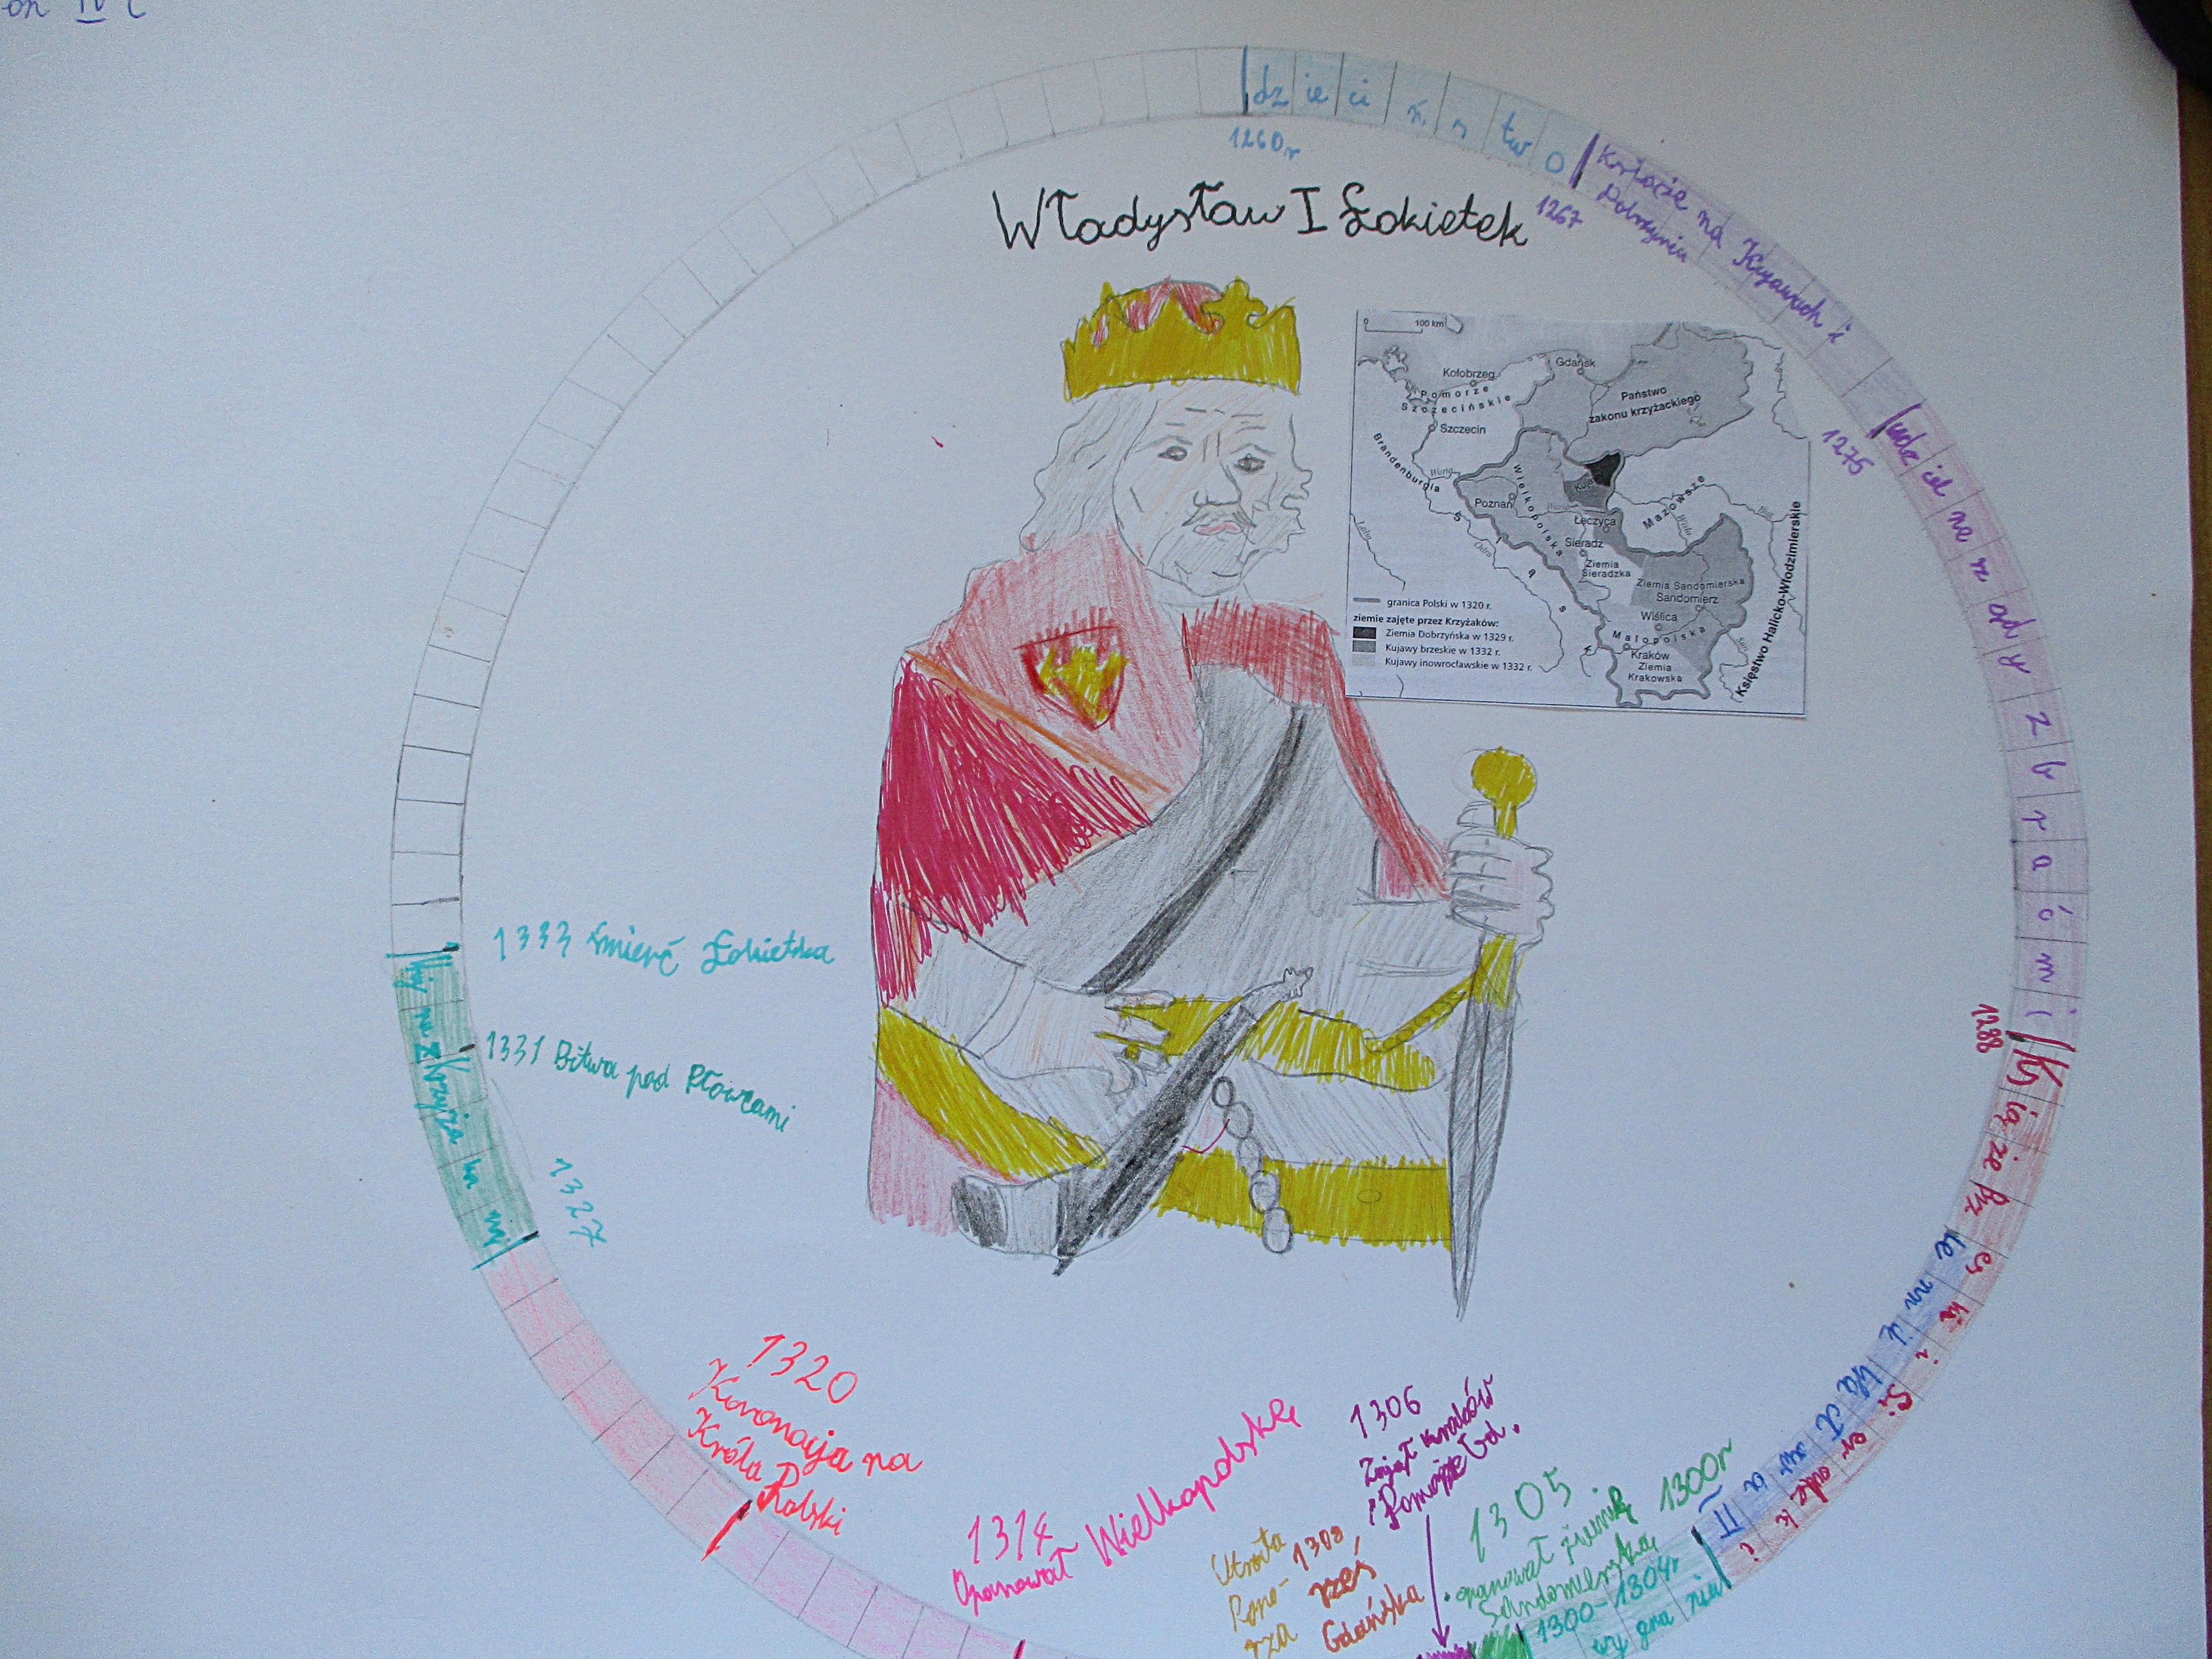 IV c
dzieciństwo
1260r
Władysław I Łokietek
1267
Książę na Kujawach i
Dobrzyniu
1275
udział na rządy z braómi
1288
Książe Brzeski i Sieradzki
lennik Wacława II
1300r
1300-1304r
wygnanie
1305
opanował ziemię
Sandomierską
1306
Zajął Kraków
i Pomorze Gd.
Utrata 1308
Pomo-
rza Gdańska
1314
Opanował Wielkopolskę
1320
Koronacja na
Króla Polski
1327
1331 Bitwa pod Płowcami
1333 śmierć Łokietka
0 100 km
Kołobrzeg
Gdańsk
Pomorze
Szczecińskie
Szczecin
Państwo
zakonu krzyżackiego
Brandenburgia
Warta
Poznań
Wielkopolska
Warta
Mazowsze
Łęczyca
Sieradz
Ziemia
Sieradzka
Odra
Śląsk
Ziemia Sandomierska
Sandomierz
Wiślica
Małopolska
Kraków
Ziemia
Krakowska
San
Księstwo Halicko-Włodzimierskie
granica Polski w 1320 r.
ziemie zajęte przez Krzyżaków:
Ziemia Dobrzyńska w 1329 r.
Kujawy brzeskie w 1332 r.
Kujawy inowrocławskie w 1332 r.